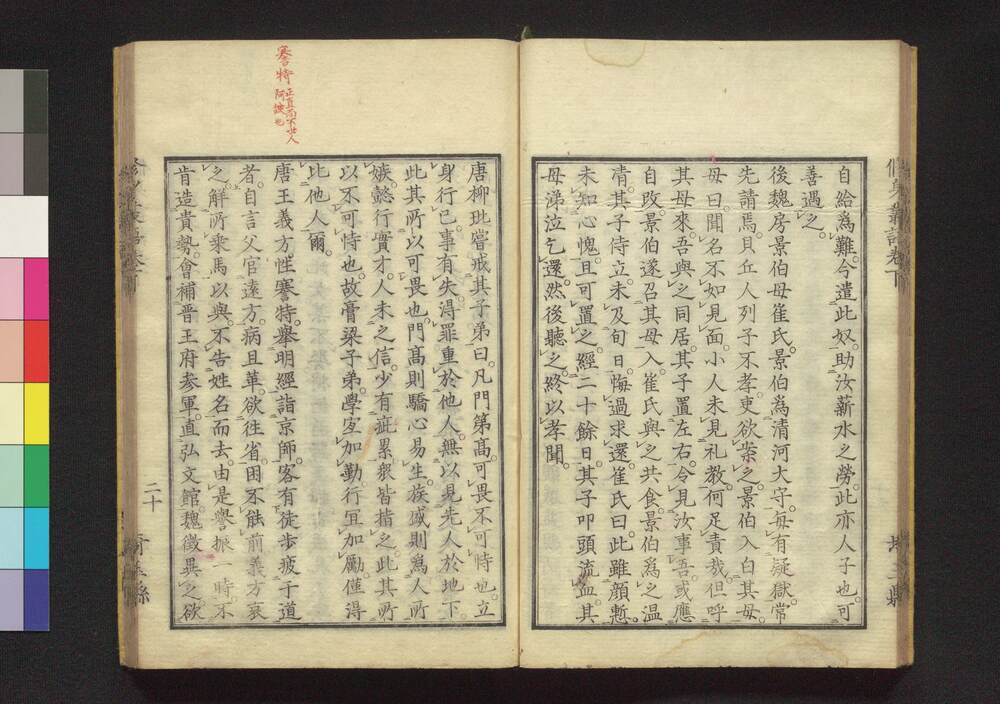 自給為難。今遣此奴。助汝薪水之勞。此亦人子也。可
善遇之。
後魏房景伯母崔氏。景伯為清河大守。每有疑獄。常
先請焉。貝丘人列子不孝。吏欲案之。景伯入白其母。
母曰。聞名不如見面。小人未見礼教。何足責我。但呼
其母來。吾與之同居。其子置左右。令見汝事吾。或應
自改。景伯遂召其母入。崔氏與之共食。景伯為之温
凊。其子侍立。未及旬日。悔過求還。崔氏曰。此雖顔慙。
未知心愧。且可置之。經二十餘日。其子叩頭流血。其
母涕泣乞還。然後聽之。終以孝聞。
蹇特 正直而不與人
阿諛也
唐柳玭嘗戒其子弟曰。凡門第高。可畏不可恃也。立
身行已。事有失。得罪重於他人。無以見先人於地下。
此其所以可畏也。門高則驕心易生。族盛則為人所
嫉。懿行實才。人未之信。少有疵累。衆皆指之。此其所
以不可恃也。故膏梁子弟。學宜加勤。行宜加勵。僅得
比他人爾。
唐王義方性蹇特。舉明經詣京師。客有徒歩疲于道
者。自言父官遠方。病且革。欲往省。困不能前。義方哀
之。解所乘馬以與。不告姓名而去。由是譽振一時。不
肯造貴勢。會補晋王府参軍。直弘文館。魏徴異之。欲
二十